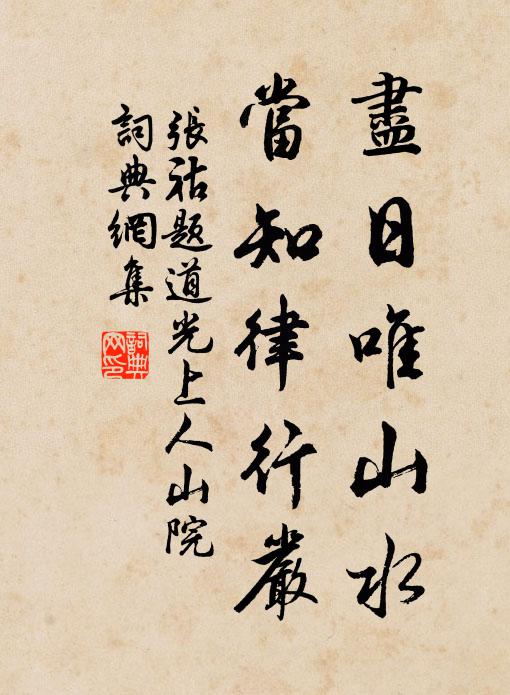 盡日唯山水
當知律行嚴
張祜題道光上人山院
詞典網集
詞典網印